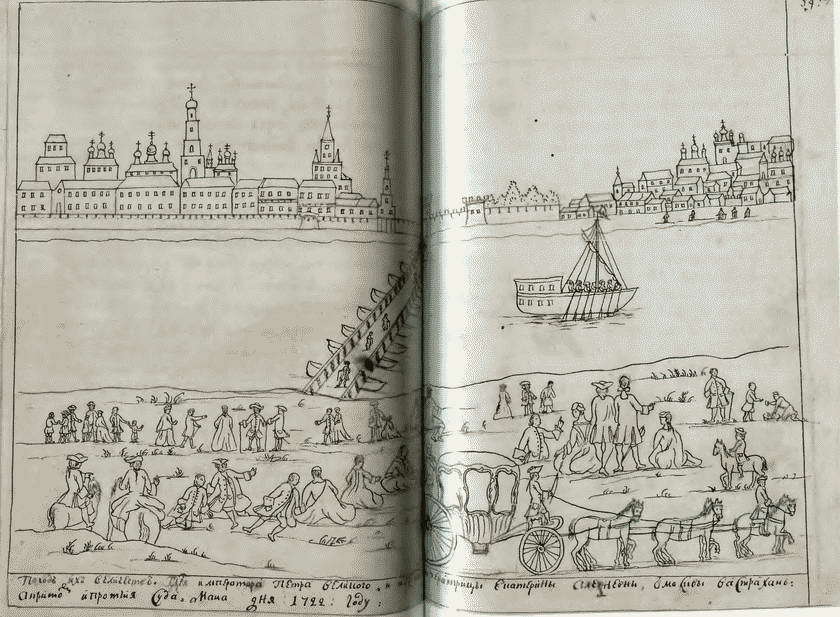 Походъ ихъ величествъ. императора Петра великого, и императрицы Екатерины Алеѯеевны, смосквы вастрахань:
Апритомъ ипротчия Суда. маиа дня 1722 году: